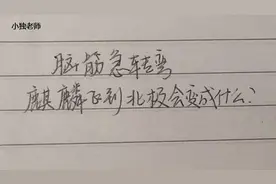 小独老师
脑筋急转弯
麒麟飞到北极会变成什么?